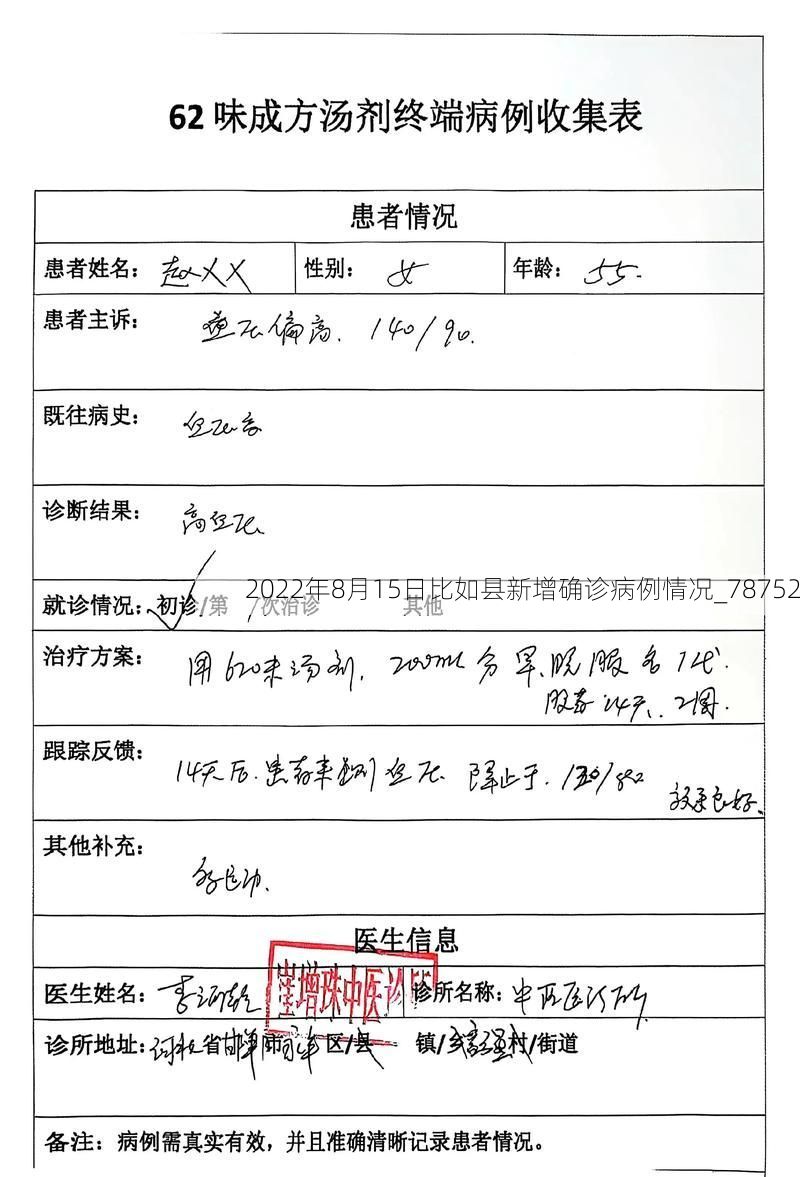 62味成方汤剂终端病例收集表
患者情况
患者姓名：赵XX 性别：女 年龄：55.
患者主诉：血压偏高. 140/90.
既往病史：血压高
诊断结果：高血压
2022年8月15日比如县新增确诊病例情况_78752
就诊情况：初诊/第 次治诊 其他
治疗方案：用62味汤剂, 200ml 分早、晚服各1代.
服药14天、2周.
跟踪反馈：14天后.患者来 血压 降 于.
效果良好、
其他补充：
医生信息
崔增珠中医诊所
医生姓名：李 诊所名称：中医诊所
诊所地址：河北省邯郸市 区/县 镇/乡 村/街道
备注：病例需真实有效，并且准确清晰记录患者情况。